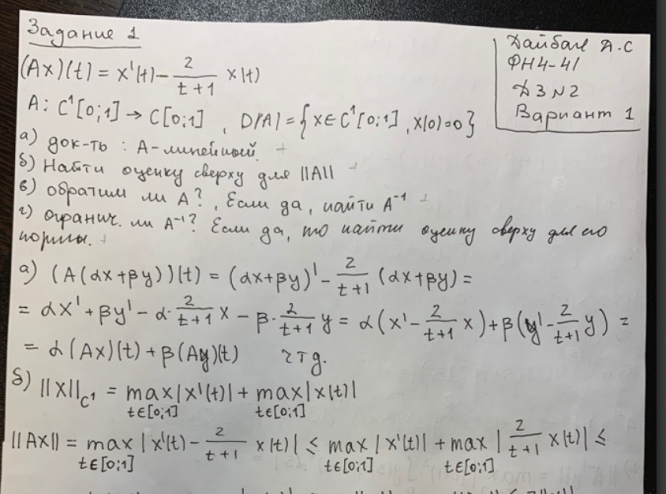 Задание 1
Дайбаге А.С
ФН4-41
ДЗ №2
Вариант 1
(Ax)(t) = x'(t) - 2/(t+1) x(t)
A: C¹[0;1] → C[0;1] , D(A) = {x ∈ C¹[0;1] , x(0)=0}
а) док-ть : A - линейный.
б) Найти оценку сверху для ||A||
в) обратим ли A? , Если да, найти A⁻¹
г) огранич. ли A⁻¹? Если да, то найти оценку сверху для его
нормы.
а) (A(αx+βy))(t) = (αx+βy)' - 2/(t+1) (αx+βy) =
= αx' + βy' - α · 2/(t+1) x - β · 2/(t+1) y = α(x' - 2/(t+1) x) + β(y' - 2/(t+1) y) =
= α(Ax)(t) + β(Ay)(t) чтд.
б) ||x||_C¹ = max |x'(t)| + max |x(t)|
t∈[0;1] t∈[0;1]
||Ax|| = max |x'(t) - 2/(t+1) x(t)| ≤ max |x'(t)| + max | 2/(t+1) x(t)| ≤
t∈[0;1] t∈[0;1] t∈[0;1]